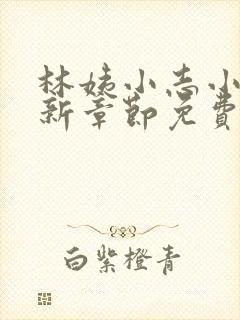 林姨小志小
新章节免费
白紫橙青